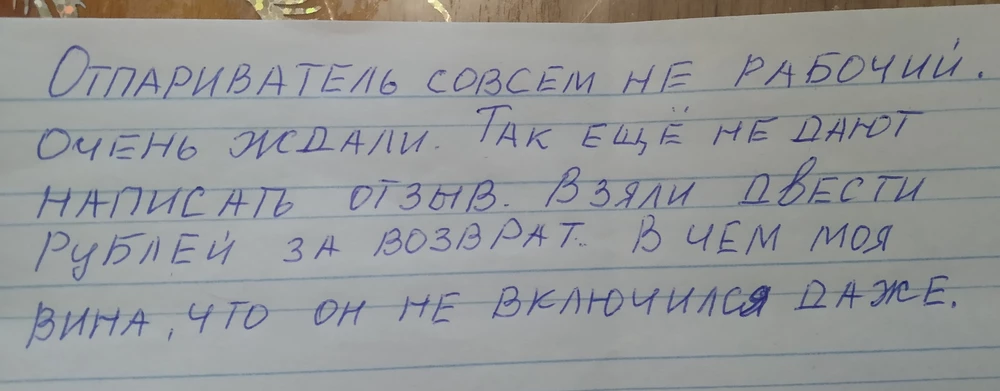 Отпариватель совсем не рабочий.
Очень ждали. Так ещё не дают
написать отзыв. Взяли двести
рублей за возврат.. В чем моя
вина, что он не включился даже.